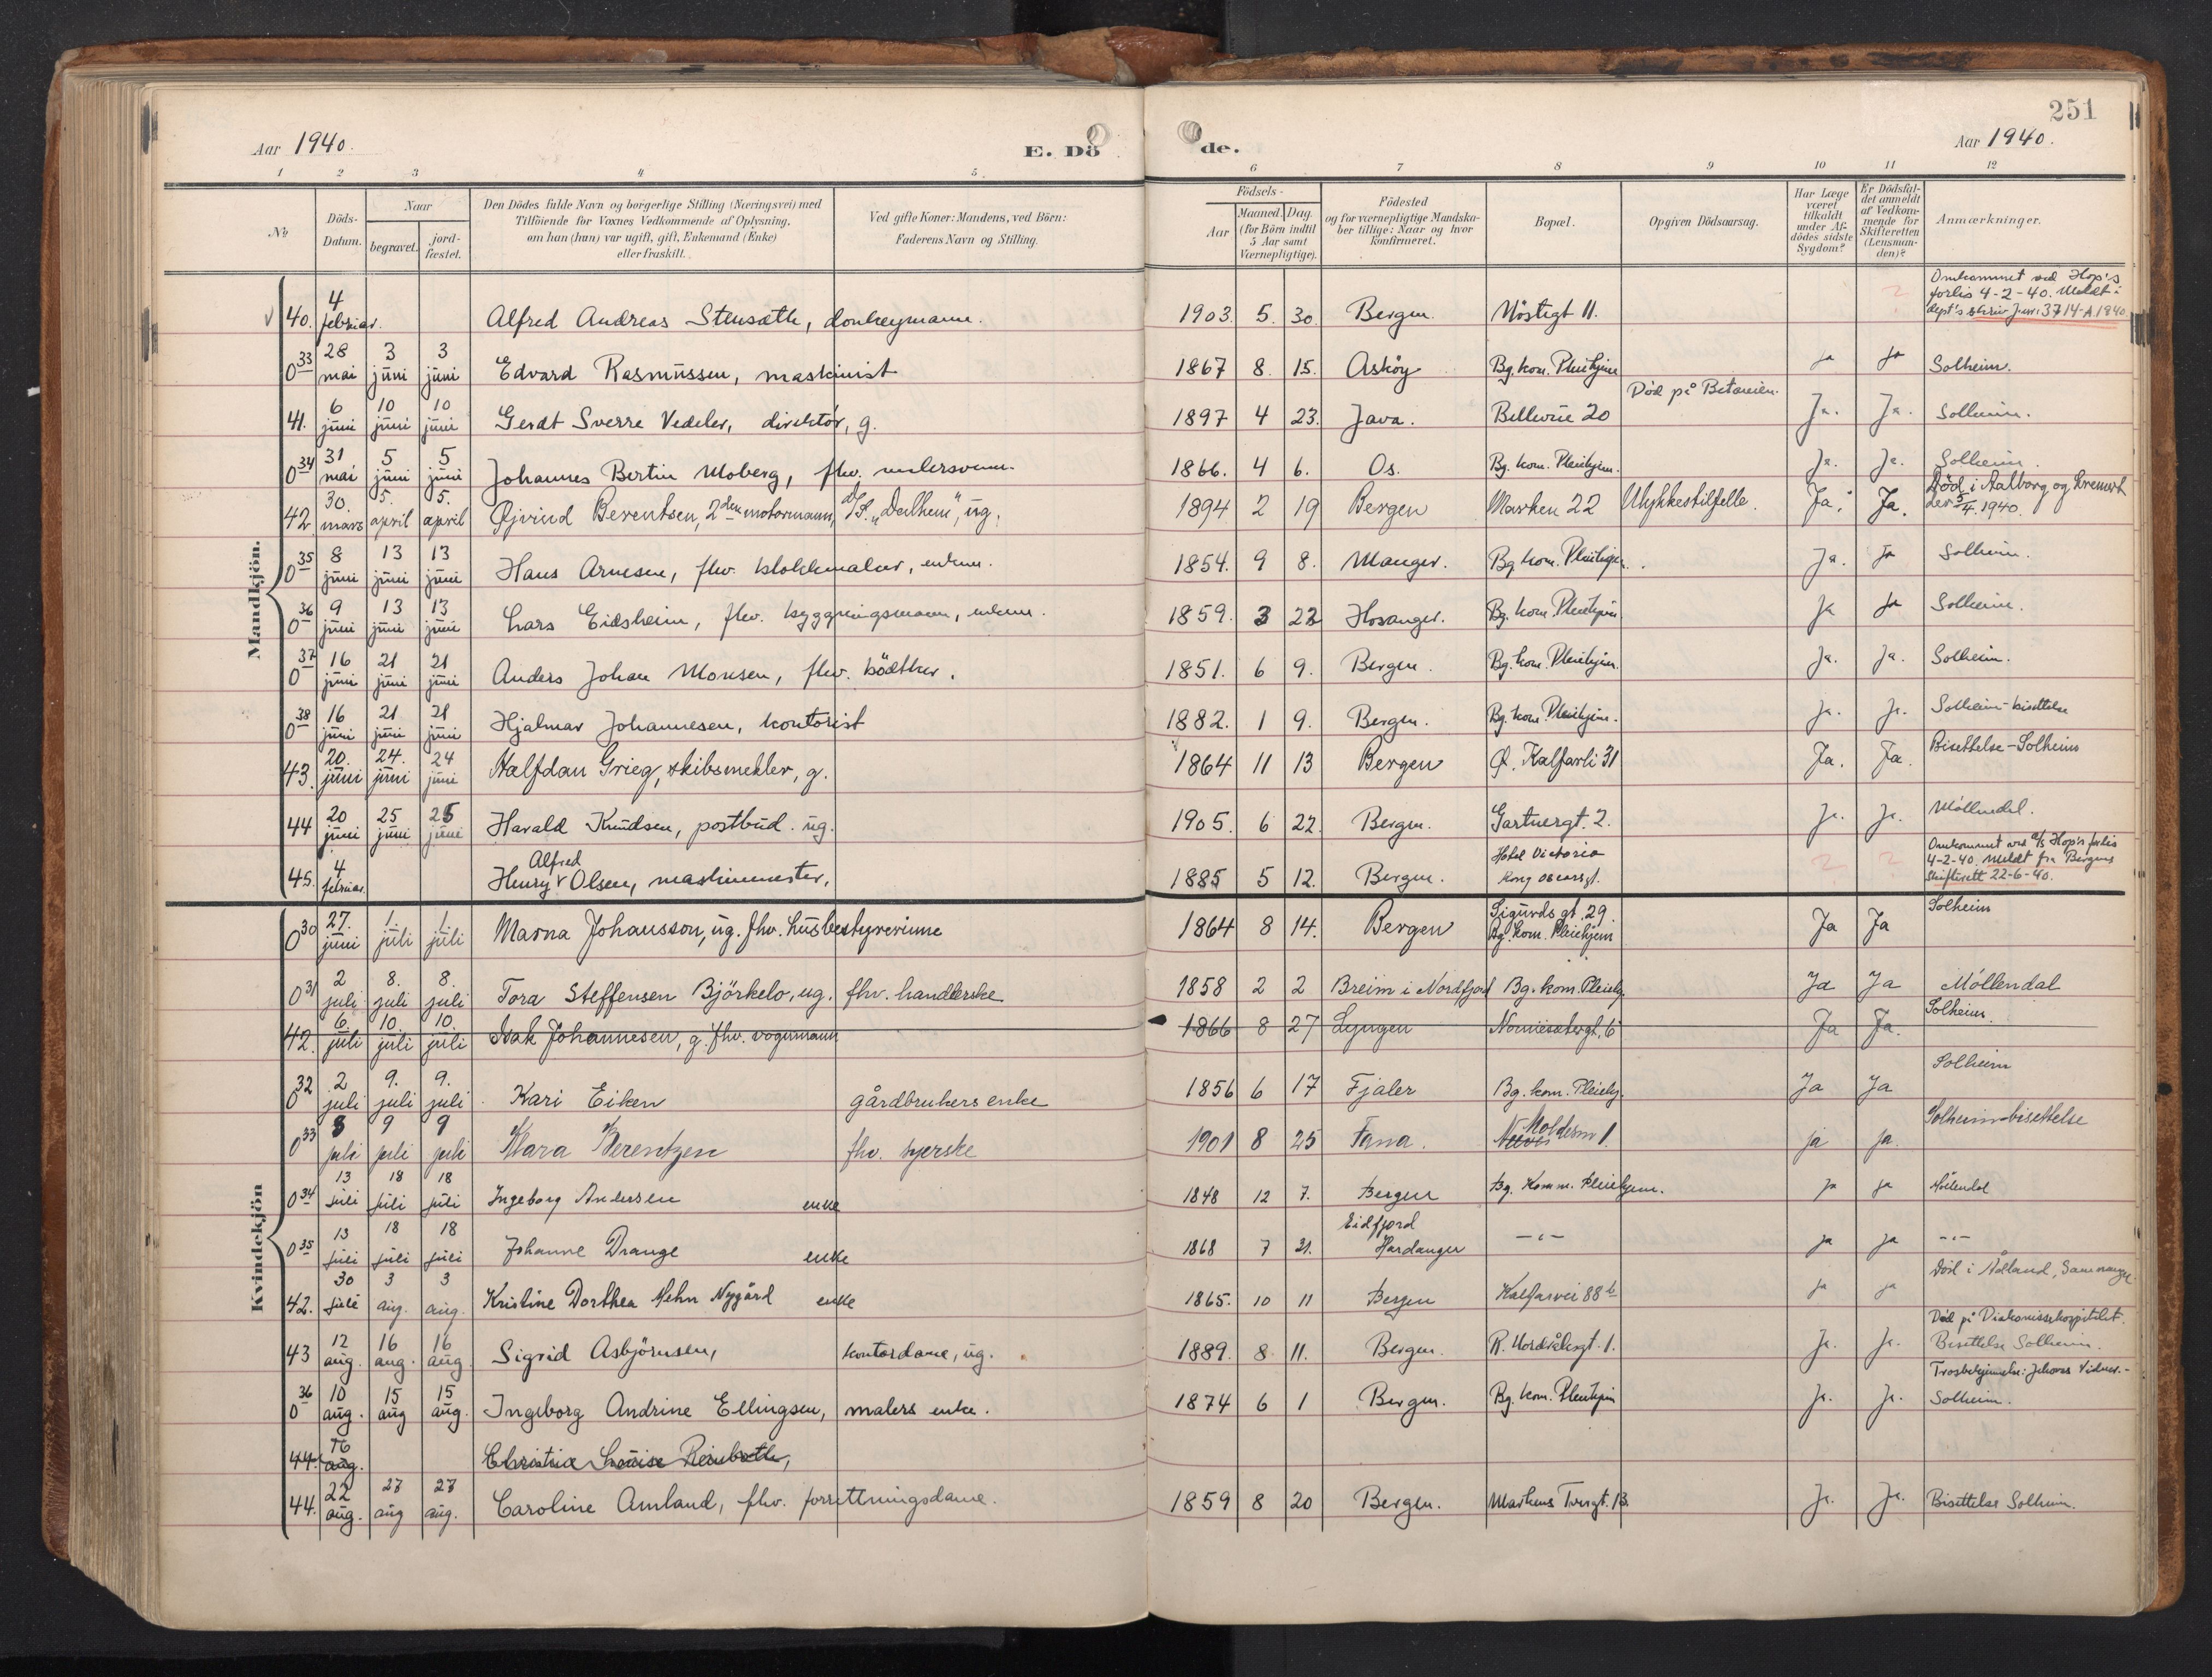 251
Aar 1940.
E. Dö
de.
Aar 1940.
1 2 3 4 5 6 7 8 9 10 11 12
No
Döds-Datum.
Naar
begravet.
jord-fæstet.
Den Dödes fulde Navn og borgerlige Stilling (Næringsvei) med
Tilföiende for Voxnes Vedkommende af Oplysning,
om han (hun) var ugift, gift, Enkemand (Enke)
eller fraskilt.
Ved gifte Koner: Mandens, ved Börn:
Faderens Navn og Stilling.
Födsels-
Aar
Maaned. Dag.
(for Börn indtil
5 Aar samt
Værnepligtige).
Födested
og for værnepligtige Mandska-
ber tillige: Naar og hvor
konfirmeret.
Bopæl.
Opgiven Dödsaarsag.
Har Læge
været
tilkaldt
under Af-
dödes sidste
Sygdom?
Er Dödsfal-
det anmeldt
af Vedkom-
mende for
Skifteretten
(Lensman-
den)?
Anmærkninger.
Mandkjön.
40. 4 februar. Alfred Andreas Stensæth, donkeymann. 1903. 5. 30. Bergen. Nöstegt 11. Omkommet ved Hop's forlis 4-2-40. Meldt i dept's skriv J.nr. 3714-A.1940
0 33 28 mai 3 juni 3 juni Edvard Rasmussen, maskinist 1867 8. 15. Asköy Bg. kom. Pleiehjem ja ja Solheim.
41. 6 juni 10 juni 10 juni Gerdt Sverre Vedeler, direktör, g. 1897 4 23. Java. Bellevue 20 Död på Betanien. Ja. Ja. Solheim.
0 34 31 mai 5 juni 5 juni Johannes Bertin Moberg, fhv. 1866. 4 6. Os. Bg. kom. Pleiehjem. Ja. Ja. Solheim.
42 30. mars 5. april 5. april Øjvind Berentsen, 2den motormann, D/S. "Dalheim", ug. 1894 2 19 Bergen Marken 22 Ulykkestilfelle. Ja. Ja. Död i Aalborg og kremert der 5/4. 1940.
0 35 8 juni 13 juni 13 juni Hans Arnesen, fhv. klokkemaker, enkem. 1854. 9 8. Manger. Bg. kom. Pleiehjem. Ja. Ja Solheim.
0 36 9 juni 13 juni 13 juni Lars Eidsheim, fhv. bygningsmann, enkem. 1859. 3 22 Hosanger. Bg. kom. Pleiehjem ja ja Solheim.
0 37 16 juni 21 juni 21 juni Anders Johan Monsen, fhv. bödtker. 1851. 6 9. Bergen. Bg. kom. Pleiehjem. Ja. Ja. Solheim.
0 38 16 juni 21 juni 21 juni Hjalmar Johannesen, kontorist 1882. 1 9. Bergen. Bg. kom. Pleiehjem. Ja. Ja. Solheim-bisettelse
43. 20. juni 24. juni 24 juni Halfdan Grieg, skibsmekler, g. 1864 11 13 Bergen Ø. Kalfarli 31 Ja. Ja. Bisettelse-Solheim
44 20 juni 25 juni 25 juni Harald Knudsen, postbud. ug. 1905. 6 22. Bergen. Gartnergt. 2. Ja. Ja. Möllendal.
45. 4 februar. Henry Alfred Olsen, maskinmester, 1885 5 12. Bergen. Hotel Victoria Kong Oscarsgt. Omkommet ved D/S Hop's forlis 4-2-40. Meldt fra Bergens skifterett 22-6-40.
Kvindekjön
0 30 27. juni 1. juli 1. juli Marna Johansson, ug. fhv. husbestyrerinne 1864 8 14. Bergen Sigurds gt. 29. Bg. kom. Pleiehjem Ja Ja Solheim
0 31 2 juli 8. juli 8. juli Tora Steffensen Björkelo, ug. fhv. handlerske 1858 2 2 Breim i Nordfjord Bg. kom. Pleiehj. Ja Ja Möllendal
42. 6. juli 10. juli 10. juli Isak Johannesen, g. fhv. vognmann 1866 8 27 Lyngen 6 Ja Ja. Solheim.
0 32 2 juli 9. juli 9. juli Kari Eiken gårdbrukers enke 1856 6 17 Fjaler Bg. kom. Pleiehj. Ja Ja Solheim
0 33 8 juli 9 juli 9 juli Klara Berentzen fhv. syerske 1901 8 25 Fana. 1. ja ja. Solheim-bisettelse
0 34 13 juli 18 juli 18 juli Ingeborg Andersen enke 1848 12 7. Bergen Bg. Komm. Pleiehjem. ja ja Möllendal
0 35 13 juli 18 juli 18 juli Johanne Drange enke 1868 7 21. Eidfjord Hardanger -"- ja ja -"-
42. 30 juli 3 aug. 3 aug. Kristine Dorthea Mehn Nygård enke 1865. 10 11 Bergen Kalfarvei 88 b ja ja Död i Ådland, Samnanger.
43 12 aug. 16 aug. 16 aug. Sigrid Asbjörnsen, kontordame, ug. 1889. 8 11. Bergen. R. Nordråksgt. 1. Ja. Ja. Död på Diakonissehospitalet. Bisettelse Solheim.
0 36 10 aug. 15 aug 15 aug. Ingeborg Andrine Ellingsen, malers enke. 1874 6 1 Bergen. Bg. kom. Pleiehjem Ja. Ja. Trosbekjennelse: Jehovas Vidner.- Solheim.
44. 16 aug. Christina Louise
44. 22 aug. 27 aug 27 aug. Caroline Amland, fhv. forretningsdame. 1859 8 20 Bergen. Markens Tvergt. 13. Ja. Ja. Bisettelse Solheim.